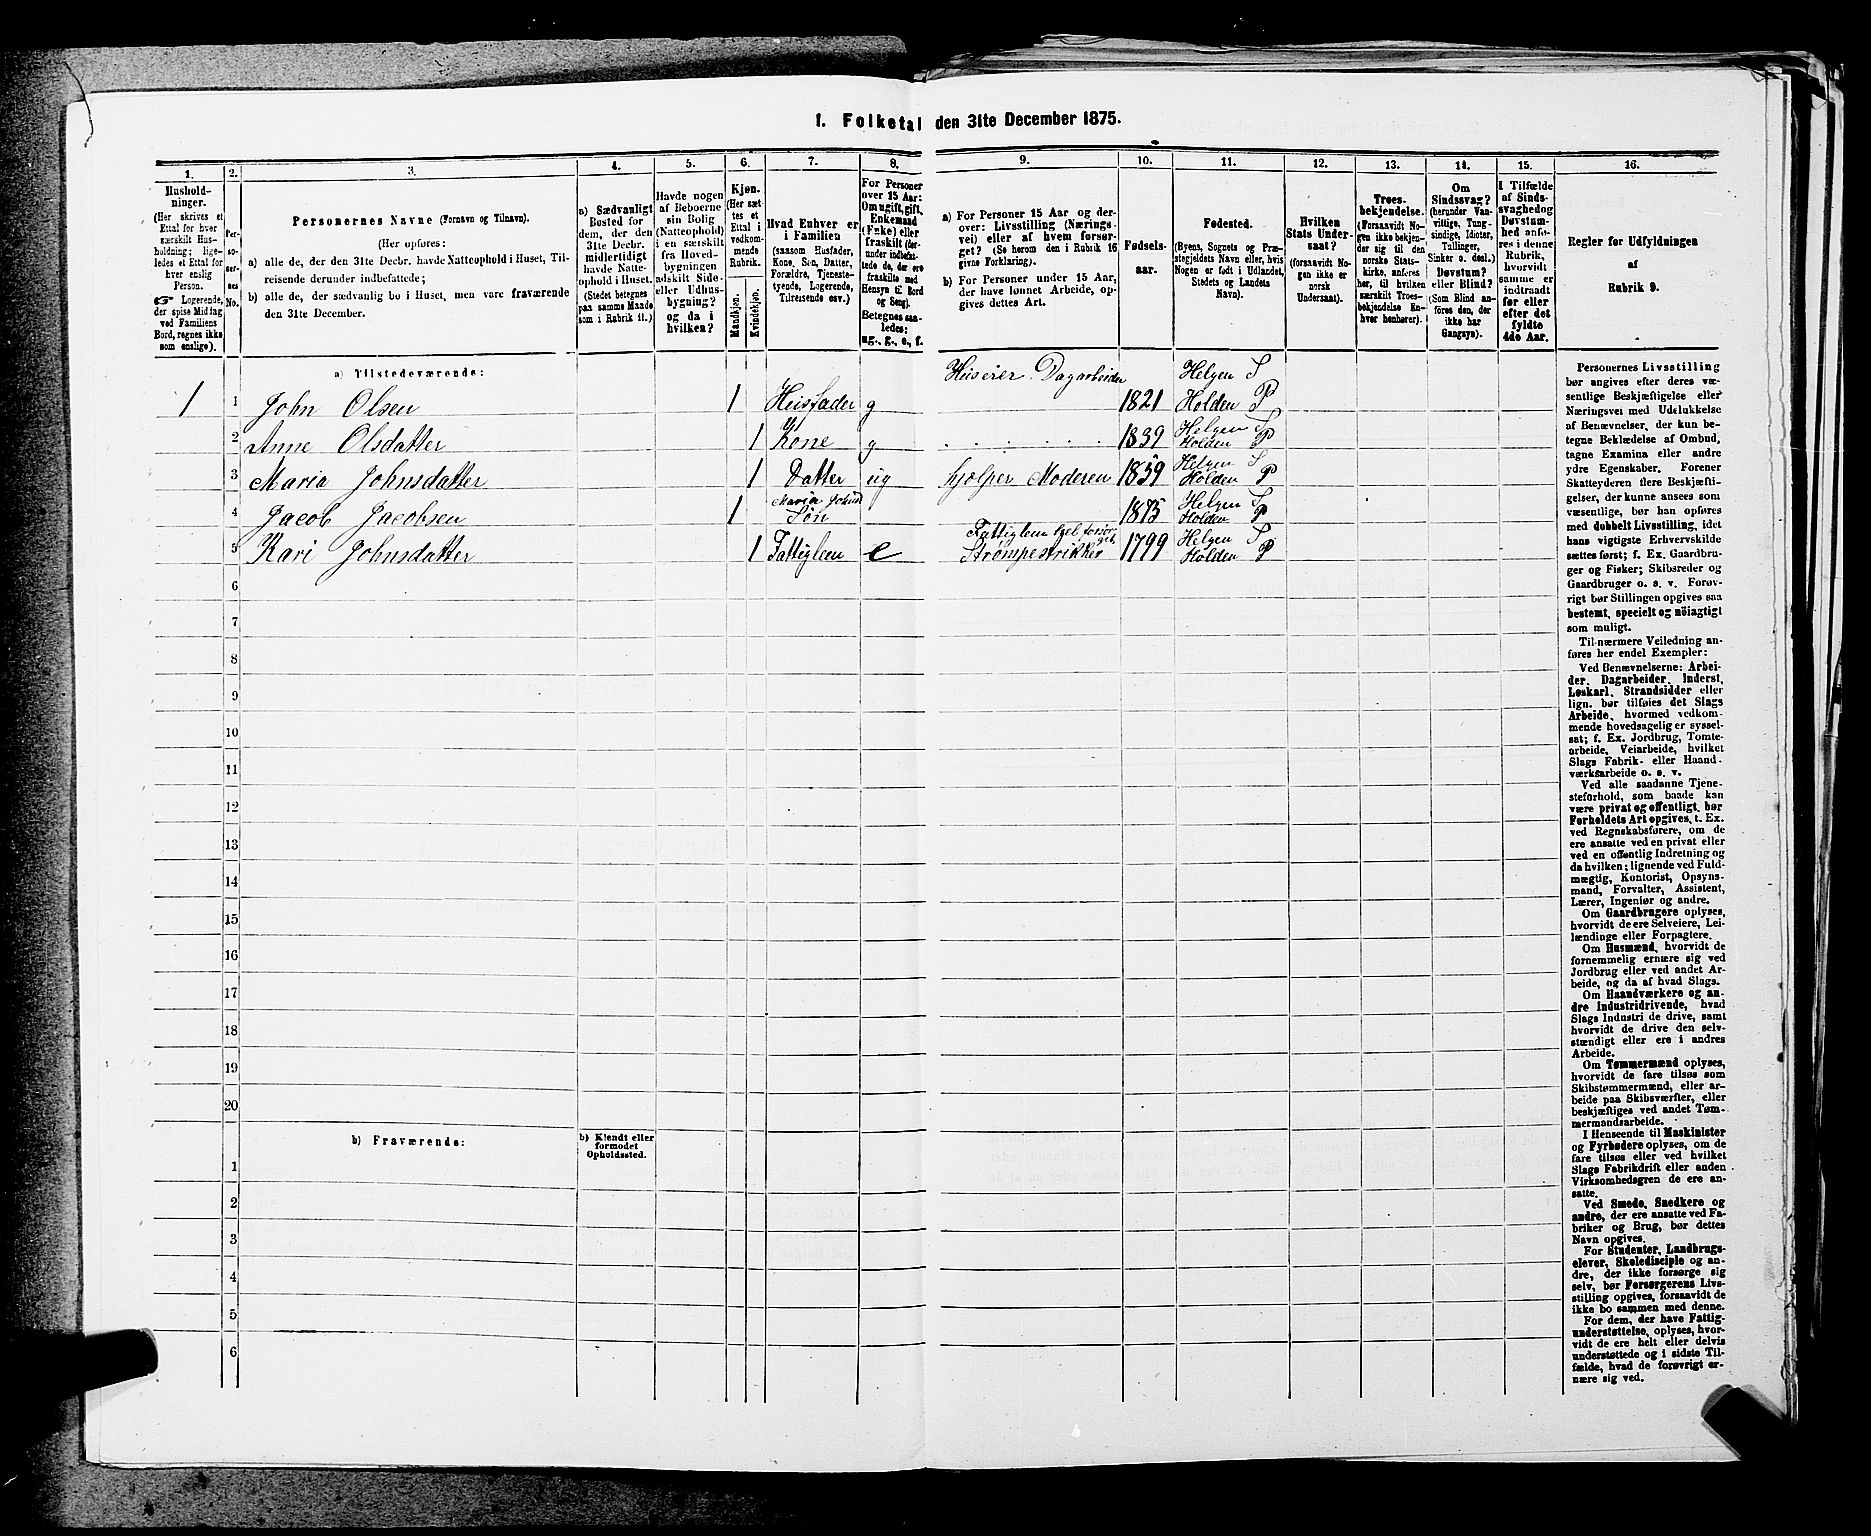 1. Folketal den 31te December 1875.
1.
Hushold-
ninger.
(Her skrives et
Ettal for hver
særskilt Hus-
holdning; lige-
ledes et Ettal for
hver enslig
Person.
☞ Logerende,
der spise Middag
ved Familiens
Bord, regnes ikke
som enslige).
2.
Per-
soner-
nes
No.
3.
Personernes Navne (Fornavn og Tilnavn).
(Her opføres:
a) alle de, der den 31te Decbr. havde Natteophold i Huset, Til-
reisende derunder indbefattede;
b) alle de, der sædvanlig bo i Huset, men vare fraværende
den 31te December.
4.
a) Sædvanligt
Bosted for
dem, der den
31te Decbr.
midlertidigt
havde Natte-
ophold i Huset.
(Stedet betegnes
paa samme Maade
som i Rubrik 11.)
5.
Havde nogen
af Beboerne
sin Bolig
(Natteophold)
i en særskilt
fra Hoved-
bygningen
adskilt Side-
eller Udhus-
bygning?
og da i
hvilken?
6.
Kjøn.
(Her sæt-
tes et
Ettal i
vedkom-
mende
Rubrik.
Mandkjøn.
Kvindekjøn.
7.
Hvad Enhver er
i Familien
(saasom Husfader,
Kone, Søn, Datter,
Forældre, Tjeneste-
tyende, Logerende,
Tilreisende osv.)
8.
For Personer
over 15 Aar:
Om ugift, gift,
Enkemand
(Enke) eller
fraskilt (der-
under indbefat-
tede de, der ere
fraskilte med
Hensyn til Bord
og Seng).
Betegnes saa-
ledes:
ug., g., e., f.
9.
a) For Personer 15 Aar og der-
over: Livsstilling (Nærings-
vei) eller af hvem forsør-
get? (Se herom den i Rubrik 16
givne Forklaring).
b) For Personer under 15 Aar,
der have lønnet Arbeide, op-
gives dettes Art.
10.
Fødsels-
aar.
11.
Fødested.
(Byens, Sognets og Præ-
stegjeldets Navn eller, hvis
Nogen er født i Udlandet,
Stedets og Landets
Navn).
12.
Hvilken
Stats Under-
saat?
(forsaavidt No-
gen ikke er
norsk
Undersaat).
13.
Troes-
bekjendelse.
(Forsaavidt No-
gen ikke bekjen-
der sig til den
norske Stats-
kirke, anføres
her, til hvilken
særskilt Troes-
bekjendelse En-
hver henhører).
14.
Om
Sindssvag?
(herunder Van-
vittige, Tung-
sindige, Idioter,
Tullinger,
Sinker o. desl.)
Døvstum?
eller Blind?
(Som Blind an-
føres den, der
ikke har
Gangsyn).
15.
I Tilfælde
af Sinds-
svaghed og
Døvstum-
hed anfø-
res i denne
Rubrik,
hvorvidt
samme er
indtraadt
før eller
efter det
fyldte
4de Aar.
16.
Regler for Udfyldningen
af
Rubrik 9.
a) Tilstedeværende:
Huseier. Dagarbeider Helgen S
1 1 John Olsen 1 Husfader g 1821 Holden P
2 Anne Olsdatter 1 Kone g . . . . . . 1839 Helgen S Holden P
3 Maria Johnsdatter 1 Datter ug hjælper Moderen 1859 Helgen S Holden P
4 Jacob Jacobsen 1 Maria Johnsd Søn 1875 Helgen S Holden P
5 Kari Johnsdatter 1 Fattiglem e Fattiglem Strømpestrikker 1799 Helgen S Holden P
6
7
8
9
10
11
12
13
14
15
16
17
18
19
20
b) Fraværende:
b) Kjendt eller
formodet
Opholdssted.
1
2
3
4
5
6
Personernes Livsstilling
bør angives efter deres væ-
sentlige Beskjæftigelse eller
Næringsvei med Udelukkelse
af Benævnelser, der kun be-
tegne Beklædelse af Ombud,
tagne Examina eller andre
ydre Egenskaber. Forener
Skatteyderen flere Beskjæfti-
gelser, der kunne ansees som
væsentlige, bør han opføres
med dobbelt Livsstilling, idet
hans vigtigste Erhvervskilde
sættes først; f. Ex. Gaardbru-
ger og Fisker; Skibsreder og
Gaardbruger o. s. v. Forøv-
rigt bør Stillingen opgives saa
bestemt, specielt og nöiagtigt
som muligt.
Til nærmere Veiledning an-
føres her endel Exempler:
Ved Benævnelserne: Arbei-
der, Dagarbeider, Inderst,
Løskarl, Strandsidder eller
lign. bør tilføies det Slags
Arbeide, hvormed vedkom-
mende hovedsagelig er syssel-
sat; f. Ex. Jordbrug, Tomte-
arbeide, Veiarbeide, hvilket
Slags Fabrik- eller Haand-
værksarbeide o. s. v.
Ved alle saadanne Tjene-
steforhold, som baade kan
være privat og offentligt, bør
Forholdets Art opgives, t. Ex.
ved Regnskabsførere, om de
ere ansatte ved en privat eller
ved en offentlig Indretning og
da hvilken; lignende ved Fuld-
mægtig, Kontorist, Opsyns-
mand, Forvalter, Assistent,
Lærer, Ingeniør og andre.
Om Gaardbrugere oplyses,
hvorvidt de ere Selveiere, Lei-
lændinge eller Forpagtere.
Om Husmænd, hvorvidt de
fornemmelig ernære sig ved
Jordbrug eller ved andet Ar-
beide, og da af hvad Slags.
Om Haandværkere og an-
dre Industridrivende, hvad
Slags Industri de drive, samt
hvorvidt de drive den selv-
stændigt eller ere i andres
Arbeide.
Om Tømmermænd oplyses,
hvorvidt de fare tilsøs som
Skibstømmermænd, eller ar-
beide paa Skibsværfter, eller
beskjæftiges ved andet Tøm-
mermandsarbeide.
I Henseende til Maskinister
og Fyrbødere oplyses, om de
fare tilsøs eller ved hvilket
Slags Fabrikdrift eller anden
Virksomhedsgren de ere an-
satte.
Ved Smede, Snedkere og
andre, der ere ansatte ved Fa-
briker og Brug, bør dettes
Navn opgives.
For Studenter, Landbrugs-
elever, Skoledisciple og an-
dre, der ikke forsørge sig
selv, bør Forsørgerens Livs-
stilling opgives, forsaavidt de
ikke bo sammen med denne.
For dem, der have Fattig-
understøttelse, oplyses, hvor-
vidt de ere helt eller delvis
understøttede og i sidste Til-
fælde, hvad de forøvrigt er-
nære sig ved.